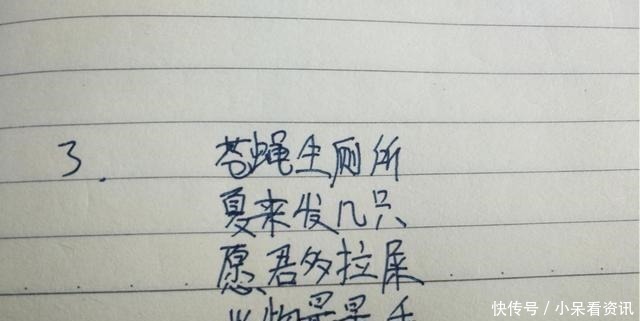 3.
苍蝇生厕所
夏来发几只
愿君多拉屎
快传号／小呆看资讯